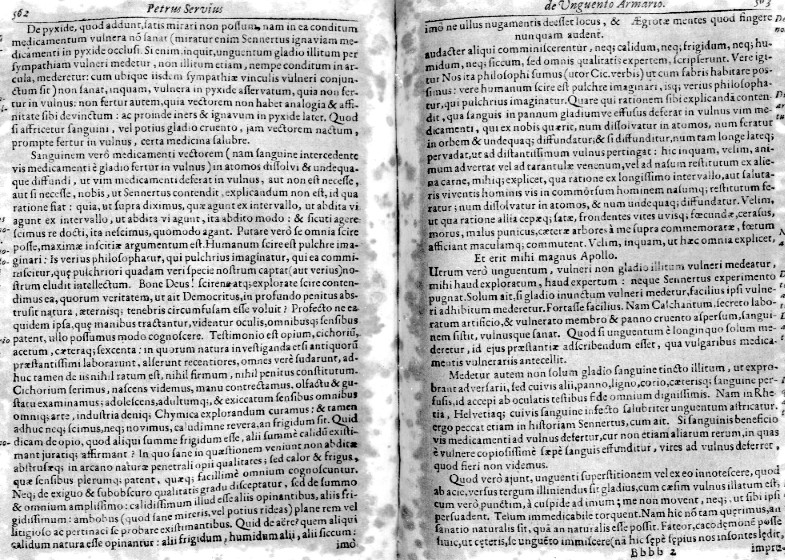 562 Petrus Servius
De pyxide, quod addunt, satis mirari non possum, nam in ea conditum
medicamentum vulnera nõ sanat (miratur enim Sennertus ignaviam me-
dicamenti in pyxide occlusi. Si enim, inquit, unguentum gladio illitum per
sympathiam vulneri medetur, non illitum etiam, nempe conditum in ar-
cula, mederetur: cum ubique iisdem sympathiæ vinculis vulneri conjun-
ctum sit) non sanat, inquam, vulnera in pyxide asservatum, quia non fer-
tur in vulnus: non fertur autem, quia vectorem non habet analogia & affi-
nitate sibi devinctum: ac promde iners & ignavum in pyxide later. Quod
si affricetur sanguini, vel potius gladio cruento, jam vectorem nactum,
prompte fertur in vulnus, certa medicina salubre.
Sanguinem verò medicamenti vectorem (nam sanguine intercedente
vis medicamenti è gladio fertur in vulnus) in atomos dissolvi & undequa-
que diffundi, ut vim medicamenti deferat in vulnus, aut non est necesse,
aut si necesse, nobis, ut Sennertus contendit, explicandum non est, id qua
ratione fiat: quia, ut supra diximus, quæ agunt ex intervallo, ut abdita vi
agunt ex intervallo, ut abdita vi agunt, ita abdito modo: & sicuti agere
scimus re docti, ita nescimus, quomodo agant. Putare verò se omnia scire
posse, maximæ inscitiæ argumentum est. Humanum scire est pulchre ima-
ginari: Is verius philosophatur, qui pulchrius imaginatur, qui ea commi-
niscitur, quę pulchriori quadam veri specie nostrum captat (aut verius) no-
strum eludit intellectum. Bone Deus! scirene atq; explorate scire conten-
dimus ea, quorum veritatem, ut ait Democritus, in profundo penitus abs-
trusit natura, æternisq; tenebris circumfusam esse voluit? Profecto ne ea
quidem ipsa, que manibus tractantur, videntur oculis, omnibusq; sensibus
patent, ullo possumus modo cognoscere. Testimonio est opium, cichoriũ,
acetum, cæteraq; sexcenta: in quorum natura investiganda etsi antiquorũ
præstantissimi laborarunt, asserunt recentiores, omnes verè sudarunt, ad-
huc tamen de iis nihil ratum est, nihil firmum, nihil penitus constitutum.
Cichorium serimus, nascens videmus, manu contrectamus, olfactu & gu-
statu examinamus: adolescens, adultumq;, & exiccatum sensibus omnibus
omniq; arte, industria deniq; Chymica explorandum curamus: & tamen
adhuc neq; scimus, neq; novimus, calidumne revera, an frigidum sit. Quid
dicam de opio, quod aliqui summe frigidum esse, alii summè calidũ existi-
mant juratiq; affirmant? In quo sane in quæstionem veniunt non abditæ
abstrusęq; in arcano naturæ penetrali opii qualitates; sed calor & frigus,
quæ sensibus plerumq; patent, quæq; facillimè omnium cognoscuntur.
Neq; de exiguo & subobscuro qualitatis gradu disceptatur, sed de summo
& omnium amplissimo: calidissimum illud esse aliis opinantibus, aliis fri-
gidissimum: ambobus (quod sane mireris, vel potius rideas) plane rem vel
litigioso ac pertinaci se probare existimantibus. Quid de aëre? quem aliqui
calidum natura esse opinantur: alii frigidum, humidum alii, alii siccum:
imò
de Unguento Armario. 563
imò ne ullus nugamentis deesset locus, & Ægrotæ mentes quod fingere
nunquam audent.
audacter aliqui comminiscerentur, neq; calidum, neq; frigidum, neq; hu-
midum, neq; siccum, sed omnis qualitatis expertem, scripserunt. Vere igi-
tur Nos ita philosophi sumus (utor Cic. verbis) ut cum fabris habitare pos-
simus: vere humanum scire est pulchre imaginari, isq; verius philosopha-
tur, qui pulchrius imaginatur. Quare qui rationem sibi explicandã conten-
dit, qua sanguis in pannum gladiumve effusus deferat in vulnus vim me-
dicamenti, qui ex nobis quærit, num dissolvatur in atomos, num feratur
in orbem & undequaq; diffundatur; & si diffunditur, num tam longe lateq;
pervadat, ut ad distantissimum vulnus pertingat: hic inquam, velim, ani-
mum advertat vel ad tarantulæ venenum, vel ad nasum restitutum ex alie-
na carne, mihiq; explicet, qua ratione ex longissimo intervallo, aut saluta-
ris viventis hominis vis in commorsum hominem nasumq; restitutum fe-
ratur; num dissolvatur in atomos, & num undequaq; diffundatur. Velim,
ut qua ratione allia cepæq; satæ, frondentes vites uvisq; fœcundæ, cerasus,
morus, malus punicus, cæteræ arbores à me supra commemoratæ, fœtum
afficiant maculamq; commutent. Velim, inquam, ut hæc omnia explicet,
Et erit mihi magnus Apollo.
Utrum verò unguentum, vulneri non gladio illitum vulneri medeatur,
mihi haud exploratum, haud expertum: neque Sennertus experimento
pugnat. Solum ait, si gladio inunctum vulneri medetur, facilius ipsi vulne-
ri adhibitum mederetur. Fortasse facilius. Nam Calchantum, secreto labo-
ratum artificio, & vulnerato membro & panno cruento aspersum, sangui-
nem sistit, vulnusque sanat. Quod si unguentum è longinquo solum me-
deretur, id ejus præstantiæ adscribendum esset, qua vulgaribus medica-
mentis vulnerariis antecellit.
Medetur autem non solum gladio sanguine tincto illitum, ut expro-
brant adversarii, sed cuivis alii, panno, ligno, corio, cæterisq; sanguine per-
fusis, id accepi ab oculatis testibus fide omnium dignissimis. Nam in Rhe-
tia, Helvetiaq; cuivis sanguine infecto salubriter unguentum affricatur.
ergo peccat etiam in historiam Sennertus, cum ait. Si sanguinis beneficio
vis medicamenti ad vulnus defertur, cur non etiam aliarum rerum, in quas
è vulnere copiosissimè sæpè sanguis effunditur, vires ad vulnus deferret,
quod fieri non videmus.
Quod verò ajunt, unguenti superstitionem vel ex eo innotescere, quod
ab acie, versus tergum illiniendus sit gladius, cum cæsim vulnus illatum est,
cum verò punctim, à cuspide ad imum; me non movent, neq; ut sibi ipsi
persuadent. Telum immedicabile torquent. Nam hic nõ tam querimus, an
sanatio naturalis sit, quã an naturalis esse possit. Fateor, cacodęmonẽ posse
huic, ut ceteris, se unguẽto immiscere (nã hic sepè sepius nos infontes lędit,
Bbbb 2 impro-